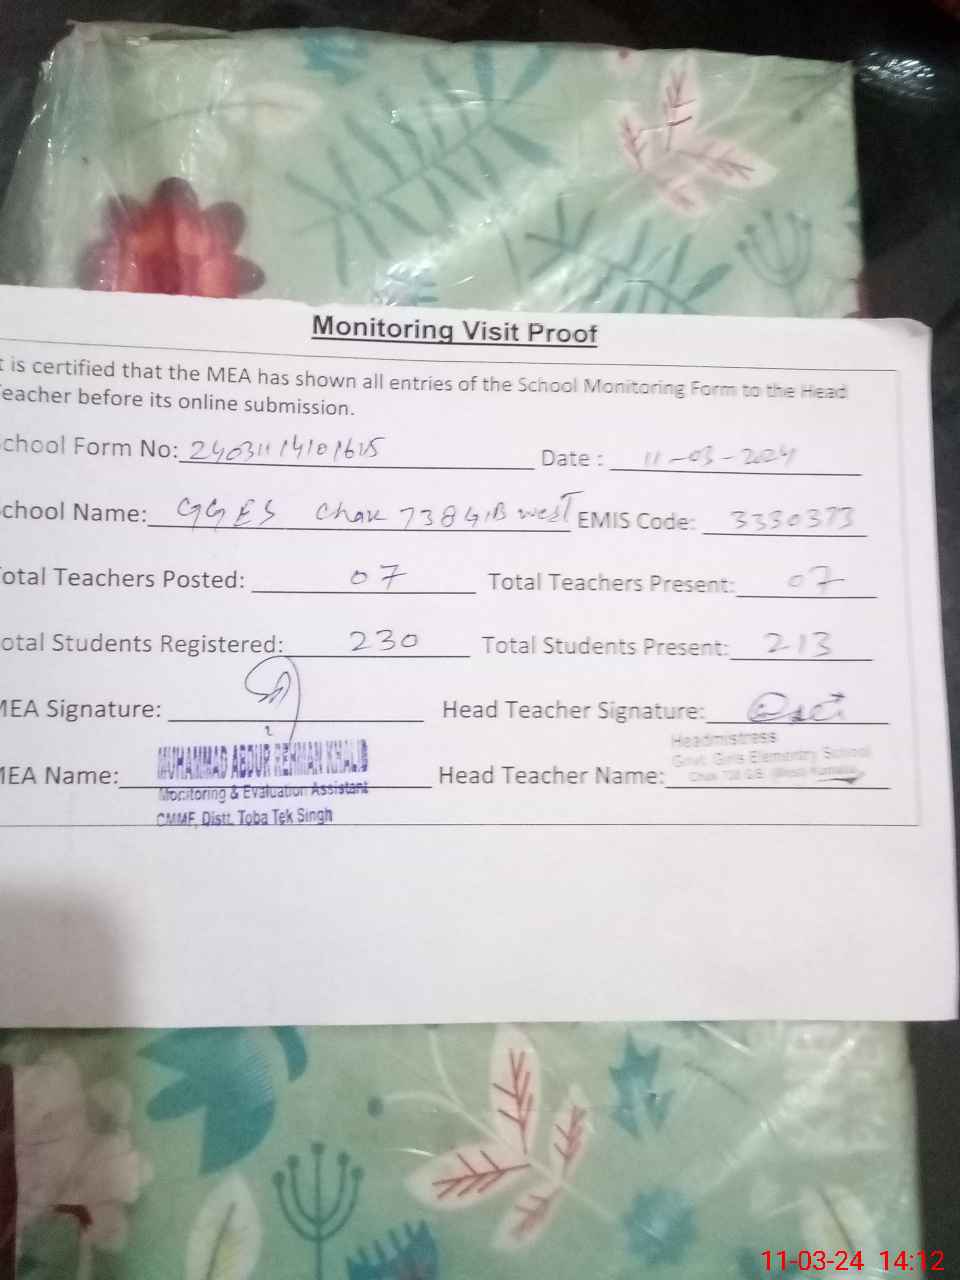 Monitoring Visit Proof
t is certified that the MEA has shown all entries of the School Monitoring Form to the Head
eacher before its online submission.
chool Form No: Date : 11-03-2024
chool Name: GGES Chak 738 G.B west EMIS Code: 3330373
otal Teachers Posted: 07 Total Teachers Present: 07
otal Students Registered: 230 Total Students Present: 213
MEA Signature: Head Teacher Signature:
Headmistress
Govt. Girls Elementry School
MEA Name: MUHAMMAD ABDUR REHMAN KHALID Head Teacher Name:
Monitoring & Evaluation Assistant
CMMF, Distt. Toba Tek Singh
11-03-24 14:12